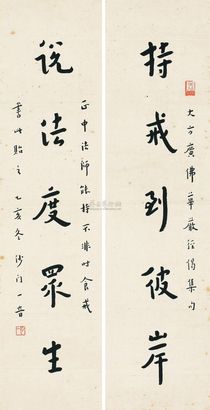 大方廣佛華嚴經偈集句
持戒到彼岸
說法度眾生
正中法師能持不非時食戒
書此貽之 乙亥冬 沙门一音